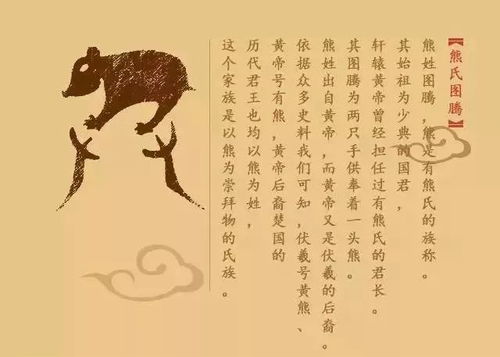 【熊氏图腾】
熊姓图腾，熊是有熊氏的族称。
其始祖为少典的国君，
轩辕黄帝曾经担任过有熊氏的君长。
其图腾为两只手供奉着一头熊。
熊姓出自黄帝，而黄帝又是伏羲的后裔。
依据众多史料我们可知，伏羲号黄熊、
黄帝号有熊，黄帝后裔楚国的
历代君王也均以熊为姓，
这个家族是以熊为崇拜物的氏族。